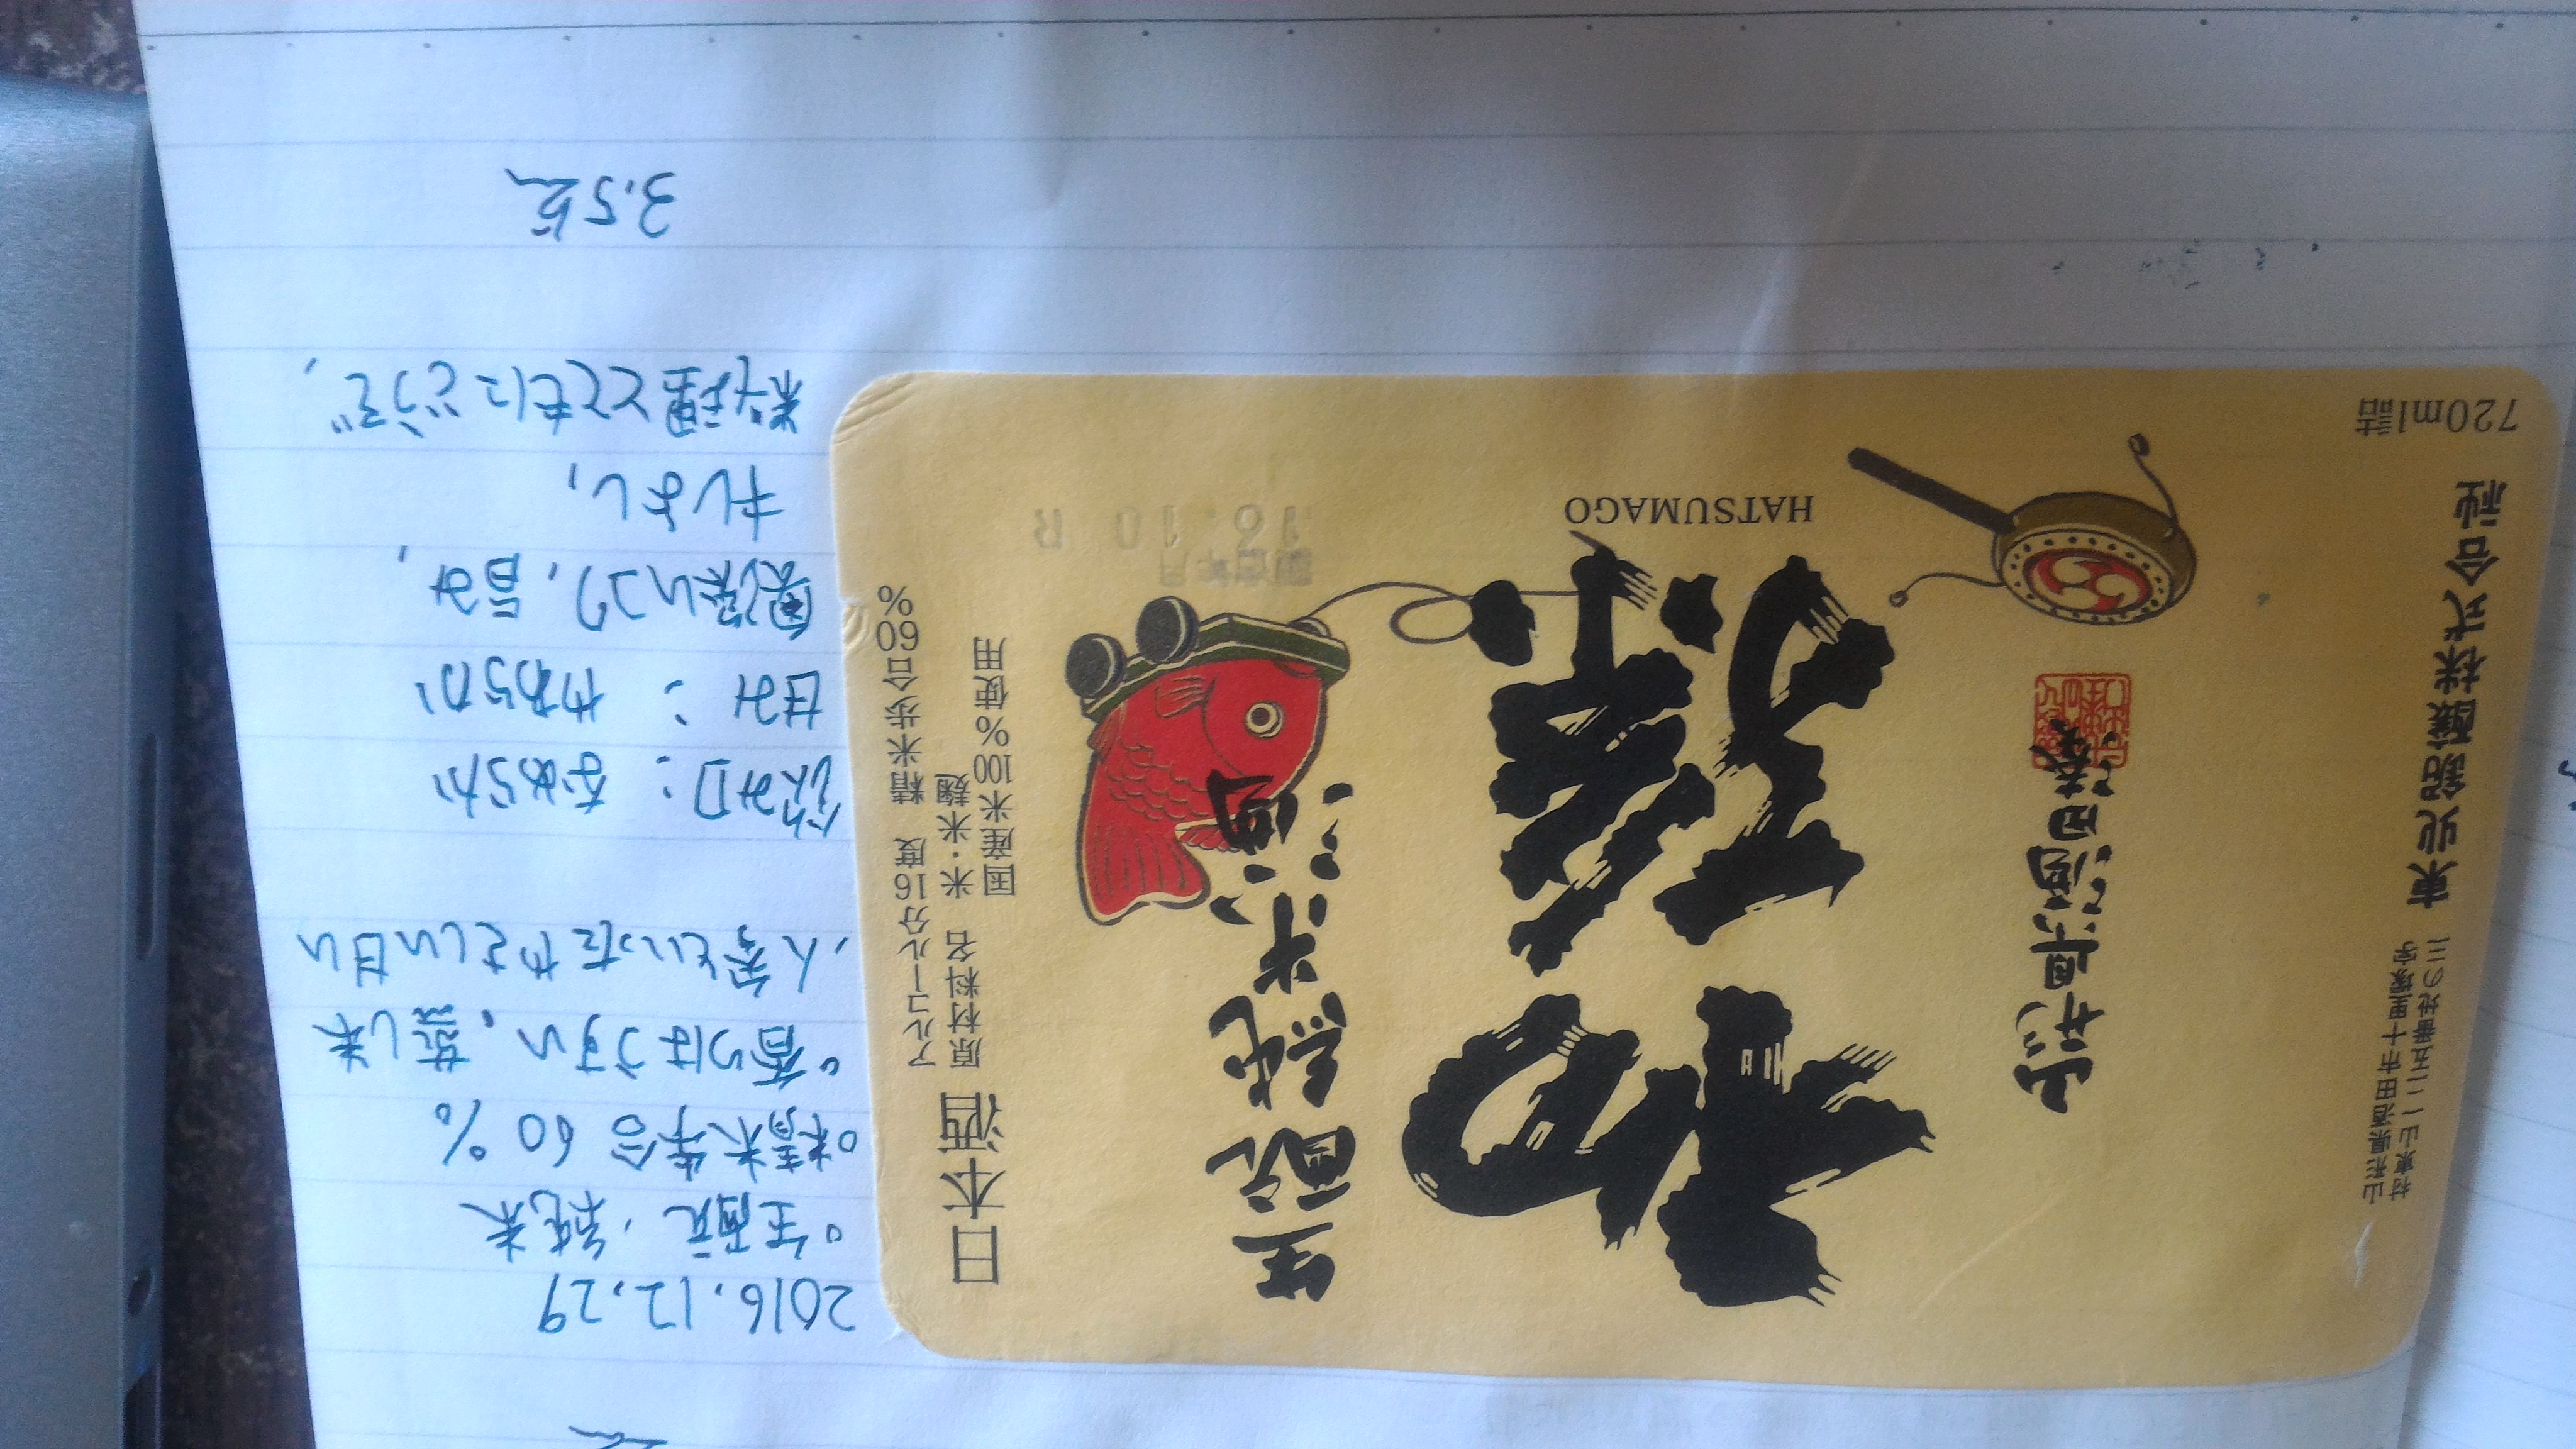 日本酒
アルコール分16度 精米歩合60%
原材料名 米・米麹
国産米100%使用
生酛純米酒
初孫
HATSUMAGO
山形県酒田湊
山形県酒田市十里塚字
村東山一二五番地の三
東北銘醸株式会社
720ml詰
16.10 R
2016.12.29
○生酛、純米
○精米歩合 60%
○香りはうすい、蒸し米
、人参といったやさしい甘い
飲み口: なめらか
甘み: やわらか
奥深いコク,旨み,
キレよし,
料理とともにどうぞ,
3.5点